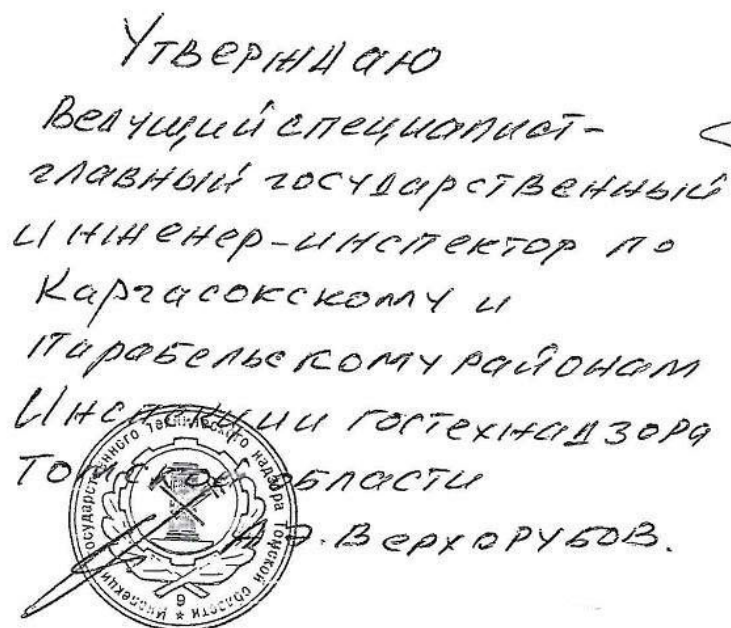 Утверждаю
Ведущий специалист-
главный государственный
инженер-инспектор по
Каргасокскому и
Парабельскому районам
Инспекции гостехнадзора
Томской области
А.Э. Верхорубов.
Инспекция государственного технического надзора Томской области * 9